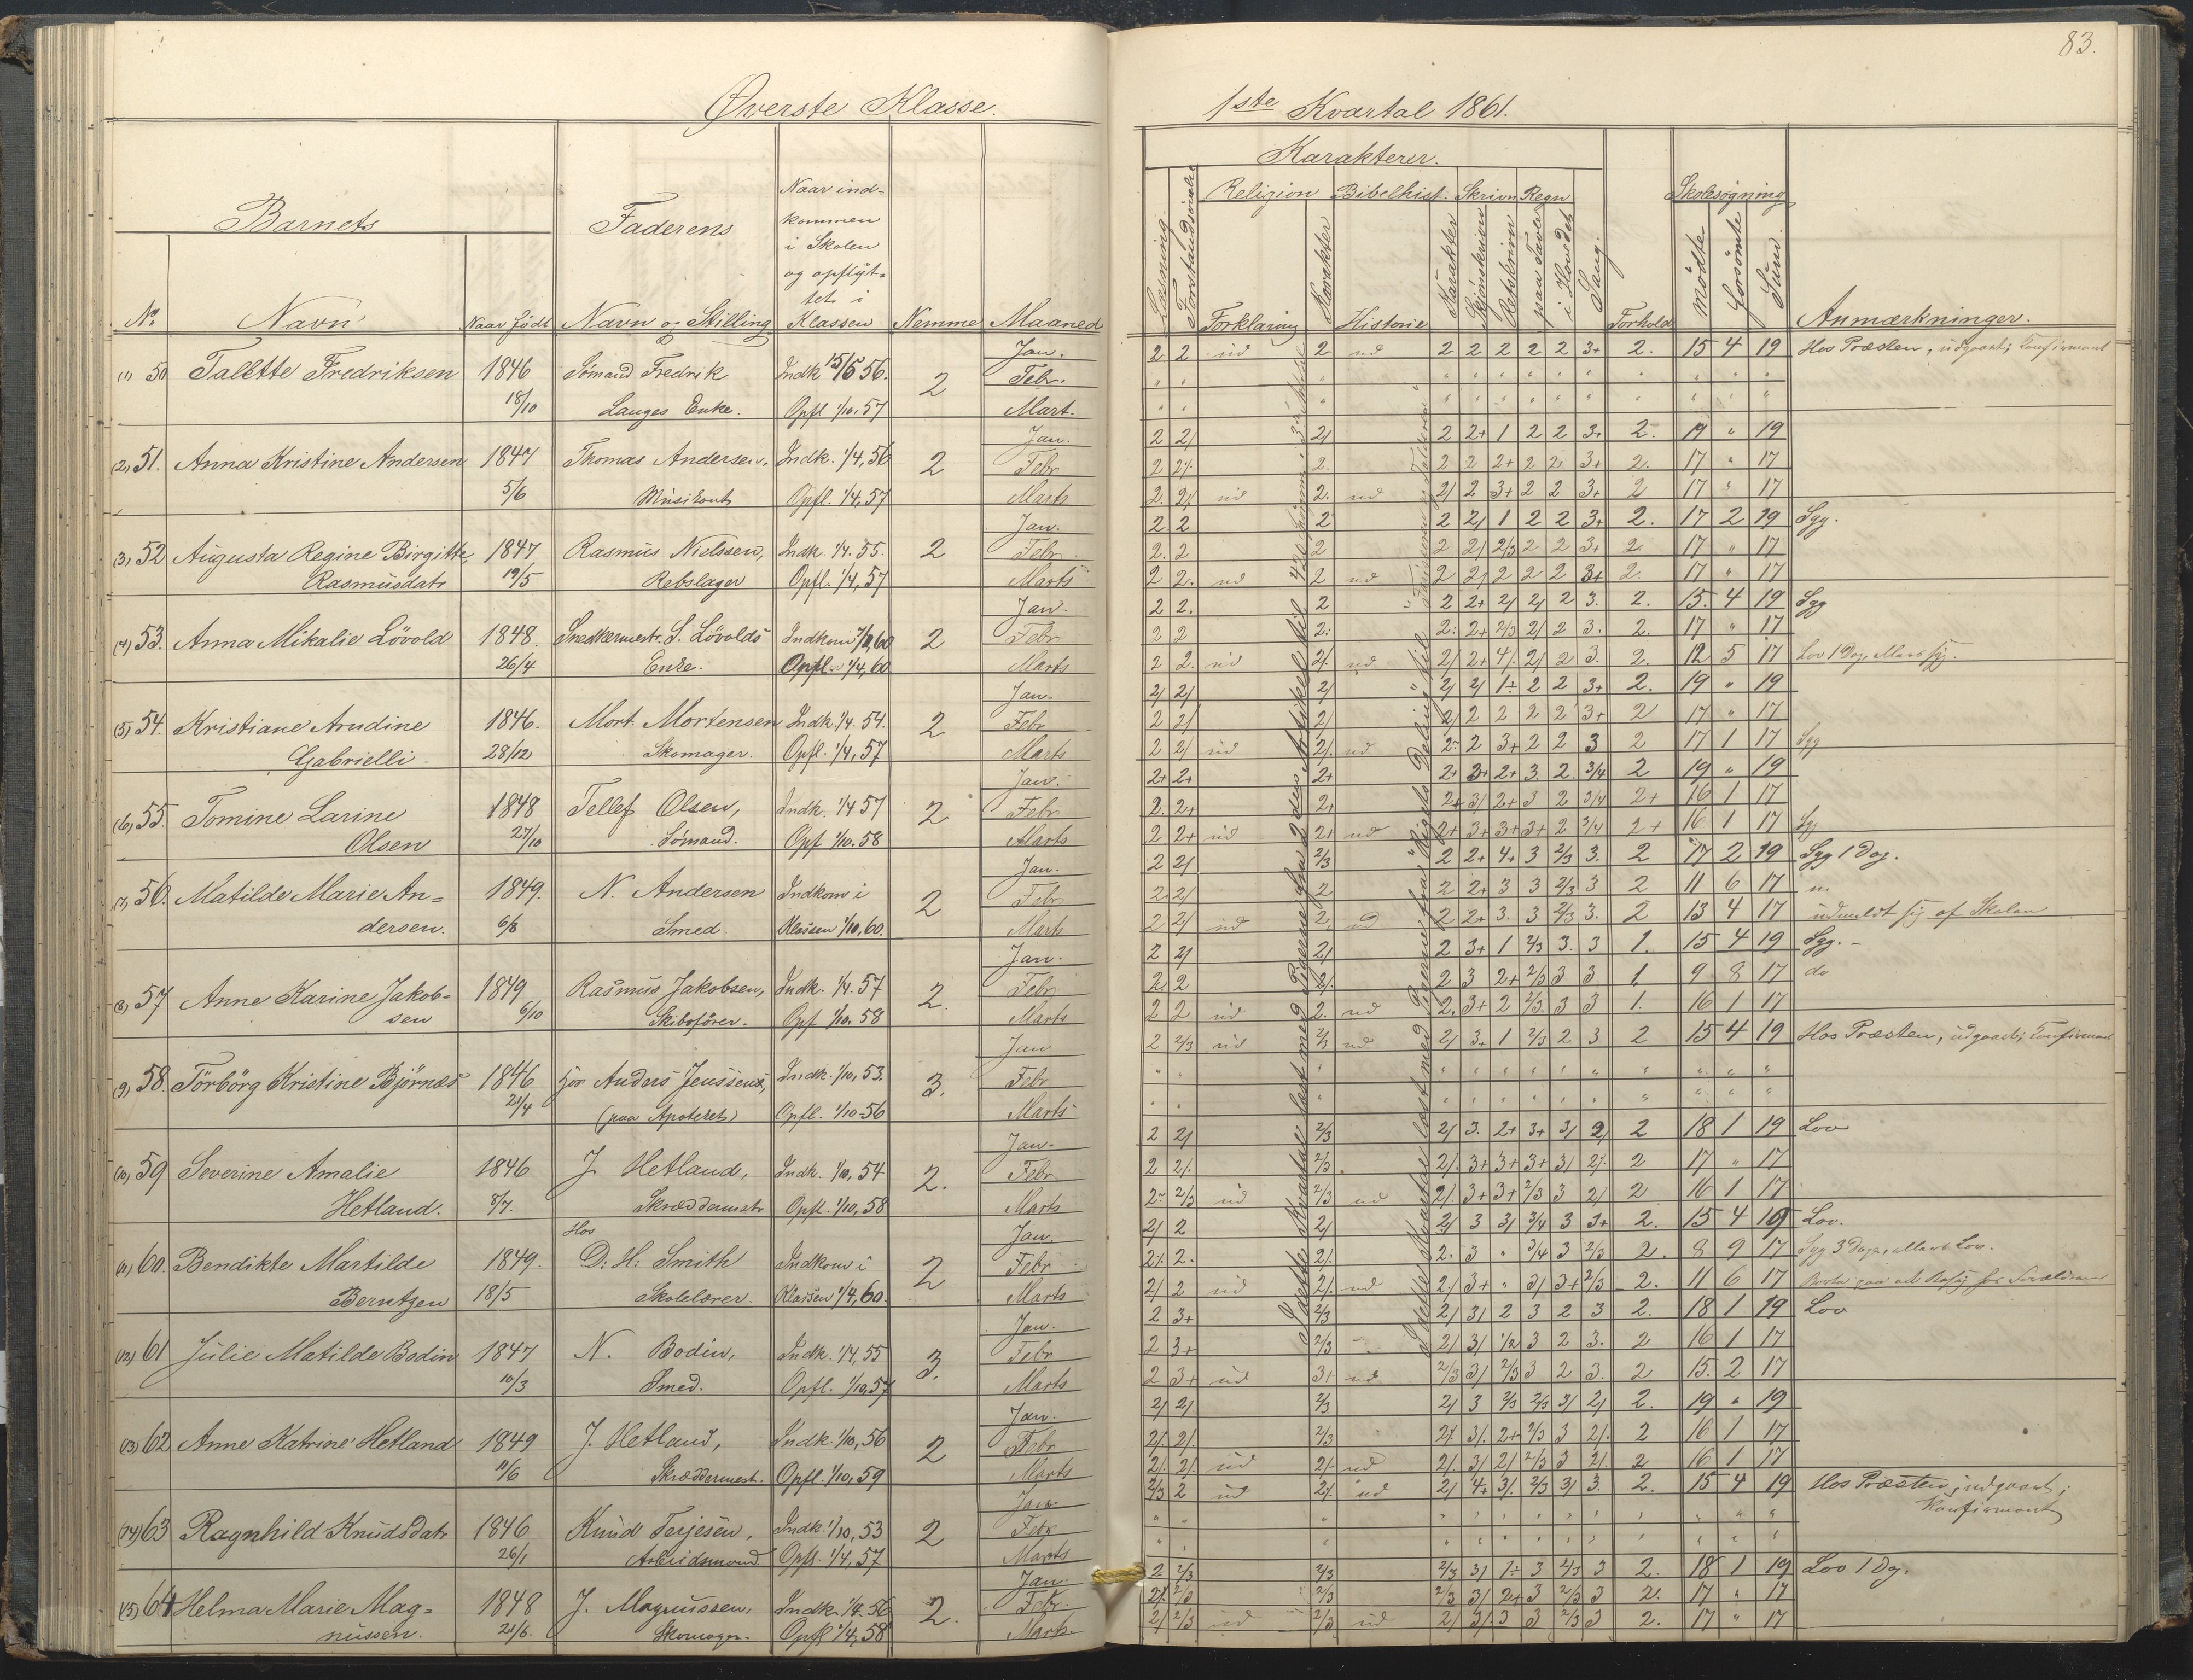 83.
Øverste Klasse.
1ste Kvartal 1861.
Barnets
Faderens
Naar ind-
kommen
i Skolen
og opflyt-
tet i
Klassen
No
Navn
Naar født
Navn og Stilling
Nemme
Maaned
Karakterer.
Læsning.
Forstandsøvelse
Religion
Forklaring
Karakter
Bibelhist.
Historie
Karakter
Skrivn
Skjönskrivn
Retskrivn
Regn
paa Tavle
i Hovedet
Sang.
Forhold
Skolesøgning
Mödte
Forsömte
Sum.
Anmærkninger.
(1) 50 Talette Fredriksen 1846 Sømand Fredrik Indk 15/5 56. 2 Jan.
18/10 Langes Enke. Opfl 1/10. 57 Febr.
Mart.
2 2 ud 2 ud 2 2 2 2 2 3+ 2. 15 4 19 Hos Præsten, udgaaet; Konfirmant
(2) 51. Anna Kristine Andersen 1847 Thomas Andersen, Indk. 1/4, 56 2 Jan.
5/6 Musikant Opfl. 1/4, 57 Febr
Marts
2 2/ 2/ 2 2+ 1 2 2 3+ 2. 19 " 19
2 2/. 2. 2 2 2+ 2 2 3+ 2. 17 " 17
2. 2/ ud 2. ud 2/ 2 3+ 2 2 3+ 2 17 " 17
(3) 52 Augusta Regine Birgitte 1847 Rasmus Nielssen, Indk. 1/4. 55. 2 Jan.
Rasmusdatr 19/5 Rebslager Opfl. 1/4, 57 Febr
Marts
2. 2 2 2 2/ 1 2 2 3+ 2. 17 2 19 Syg.
2. 2 2 2 2/ 2/3 2 2 3+ 2 17 " 17
2 2. ud 2 ud 2 2/ 2 2 2 3+ 2. 17 " 17
(4) 53. Anna Mikalie Lövold 1848. Snedkermestr. S. Lövolds Indkom 1/4, 60 2 Jan.
26/4 Enke. Opfl. 1/4, 60 Febr
Marts
2 2. 2 2 2+ 2/ 2/ 2 3. 2. 15. 4 19 Syg
2 2 2. 2. 2+ 2/3 2/ 2 3. 2. 17 " 17
2 2. ud 2/. ud 2/ 2+ 4/. 2/ 2 3. 2. 12 5 17 Lov 1 Dag, ellers syg.
(5) 54. Kristiane Andine 1846. Mort. Mortensen Indk. 1/4. 54. 2 Jan.
Gabrielli 28/12 Skomager. Opfl. 1/4, 57 Febr
Marts
2/ 2/ 2/ 2/ 2/ 1÷ 2 2 3+ 2. 19 " 19
2 2/ 2/ 2/ 2 2 2 2 3+ 2 17 " 17
2 2/ ud 2/. ud 2- 2 3+ 2 2 3 2 17 1 17 Syg
(6) 55. Tomine Larine 1848 Tellef Olsen, Indk. 1/4 57 2 Jan.
Olsen 27/10 Sømand. Opf 1/10. 58 Febr
Marts
2+ 2+ 2+ 2+ 3+ 2+ 3 2. 3/4 2 19 " 19
2. 2+ 2+ 2+ 3/ 2+ 3 2 3/4 2+ 16 1 17
2 2+ ud 2+ ud 2+ 3+ 3+ 3+ 2 3/4 2+ 16 1 17 Syg
(7) 56. Matilde Marie An- 1849. N. Andersen Indkom i 2 Jan.
dersen. 6/8 Smed. Klassen 1/10, 60. Febr
Marts
2 2/ 2/3 2 2+ 4+ 3 2/3 3. 2 17 2 19 Syg 1 Dag.
2 2/ 2 2 2+ 3 3 2/3 3 2 11 6 17
2 2/ ud 2. ud 2 2+ 3. 3 2/3 3. 2 13 4 17 udmeldt sig af Skolen
(8) 57 Anne Karine Jakob- 1849 Rasmus Jakobsen, Indk. 1/4. 57 2. Jan.
sen 6/10 Skibsfører. Opf 1/10. 58 Febr
Marts
2 2/ 2/ 2 3+ 1 2/3 3. 3 1. 15 4 19 Syg.
2 2 2/. 2 3 2+ 2/3 3 3 1 9 8 17 do
2 2 ud 2. ud 2. 3+ 2 2/3 3 3 1. 16 1 17
(9) 58. Törbörg Kristine Björnæs 1846 Anders Jenssens, Indk. 1/10, 53. 3. Jan
21/4 (paa Apoteket) Opfl. 1/10-56 Febr
Marts
2 2/3 ud 2/3 ud 2/ 3+ 1 2/3 2 3 2 15 4 19 Hos Præsten, udgaaet; Konfirmant
(10) 59 Severine Amalie 1846 J. Hetland, Indk. 1/10, 54 2. Jan.
Hetland. 8/7. Skræddermstr Opfl. 1/10, 58 Febr
Marts
2 2/ 2/3 2/ 3. 2+ 3+ 3/ 2/ 2 18 1 19 Lov
2 2/. 2/3 2/. 3+ 3+ 3+ 3/ 2/. 2 17 " 17
2- 2/3 ud 2/3 ud 2/ 3+ 3+ 2/3 3 2/ 2 16 1 17
Hos
(11) 60. Bendikte Martilde 1849. D. H. Smith Indkom i 2 Jan.
Berntzen 18/5 Skolelærer. Klassen 1/4, 60. Febr
Marts
2/ 2 2/ 2/ 3 3/ 3/4 3 3+ 2. 15 4 19 Lov.
2/. 2. 2/. 2. 3 " 3/4 3 2/3 2. 8 9 17 Syg 3 Dage, ellers Lov.
2/ 2 ud 2/. ud 2/ 3+ " 3/ 3+ 2/3 2. 11 6 17
(12) 61 Julie Matilde Bodin 1847 N. Bodin, Indk. 1/4, 55 3. Jan.
10/3 Smed. Opfl. 1/10, 57 Febr
Marts
2 3+ 2/3 2/ 3/ 2 3 2 3 2. 18 1 19 Lov
2 3+ 2/3 2/ 3/ 1/2 3 2 3. 2 16 1 17
2 3+ ud 3+ ud 2/3 3/ 2/3 3 2 3. 2 15. 2 17
(13) 62 Anne Katrine Hetland 1849 J. Hetland, Indk. 1/10, 56 2 Jan.
11/6 Skræddermest. Opfl. 1/10, 59 Febr
Marts
2/ 2/ 2/3 2/ 3 2/3 2/3 3/ 2/ 2. 19 " 19
2/. 2/. 2/3 2/. 3/. 2+ 2/3 3 2/. 2 16 1 17
2/. 2/. ud 2/. ud 2/ 3/ 2/ 2/3 3 2/. 2 16 1 17
(14) 63 Ragnhild Knudsdatr 1846 Knud Terjesen, Indk. 1/10, 53 2 Jan.
26/1 Arbeidsmand Opfl. 1/4, 57 Febr
Marts
2/3 2 ud 2/. ud 2/ 4+ 3/. 2/3 3/ 3. 2. 15 4 19 Hos Præsten, udgaaet;
Konfirmant
(15) 64 Helma Marie Mag- 1848 J. Magnussen, Indk. 1/4. 56 2. Jan.
nussen. 21/6. Skomager. Opfl 1/4, 58 Febr.
Marts
2 2/3 2/3 2/3 3/ 1÷ 3 2/3 3 2. 18 1 19 Lov 1 Dag.
2/. 2/3 2/3 2/3 3/ 2+ 3 2/3 3 2. 17 " 17
2/ 2/3 ud 2/3 ud 2/ 3/. 3 3 2/3 3 2. 17 " 17
I dette Kvartal læst med Pigerne fra 2den Artikel til
I dette Kvartal læst med Pigerne fra "Rigets Deling" til